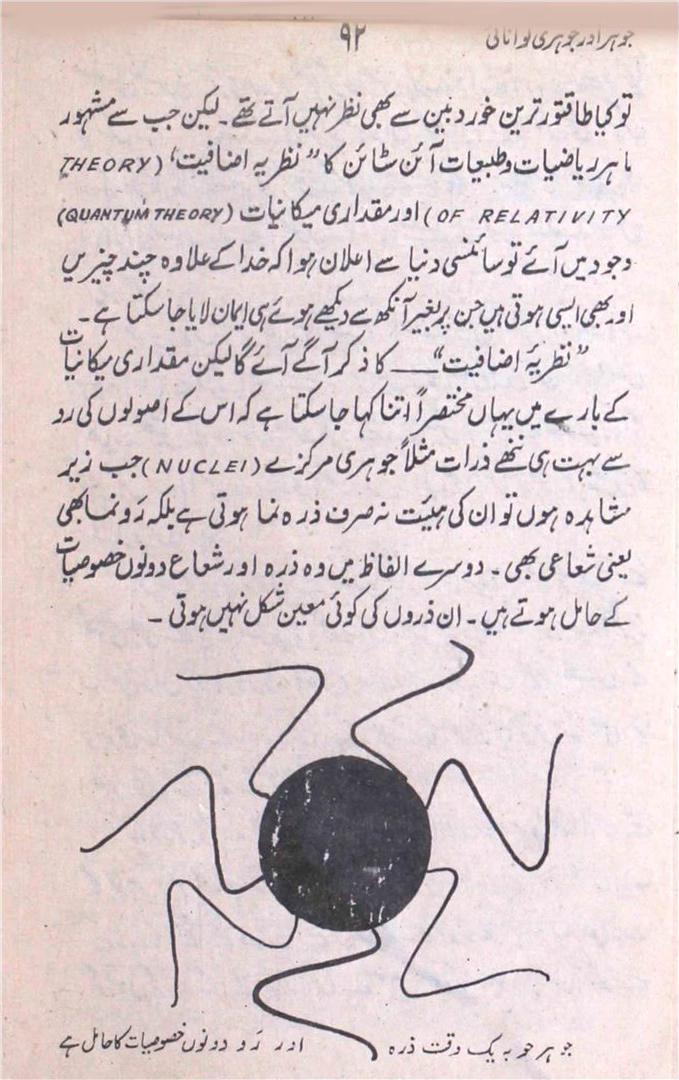 جوہر اور جوہری توانائی
۹۲
تو کیا طاقتور ترین خوردبین سے بھی نظر نہیں آتے تھے۔ لیکن جب سے مشہور
ماہر ریاضیات و طبیعات آئن سٹائن کا ”نظریہ اضافیت“ (THEORY
OF RELATIVITY) اور مقداری میکانیات (QUANTUM THEORY)
وجود میں آئے تو سائنسی دنیا سے اعلان ہوا کہ خدا کے علاوہ چند چیزیں
اور بھی ایسی ہوتی ہیں جن پر بغیر آنکھ سے دیکھے ہوئے ہی ایمان لایا جا سکتا ہے۔
”نظریۂ اضافیت“ — کا ذکر آگے آئے گا لیکن مقداری میکانیات
کے بارے میں یہاں مختصراً اتنا کہا جا سکتا ہے کہ اس کے اصولوں کی رو
سے بہت ہی ننھے ذرات مثلاً جوہری مرکزے (NUCLEI) جب زیر
مشاہدہ ہوں تو ان کی ہیئت نہ صرف ذرہ نما ہوتی ہے بلکہ رَو نما بھی
یعنی شعاعی بھی۔ دوسرے الفاظ میں وہ ذرہ اور شعاع دونوں خصوصیات
کے حامل ہوتے ہیں۔ ان ذروں کی کوئی معین شکل نہیں ہوتی۔
جوہر جو بہ یک وقت ذرہ اور رَو دونوں خصوصیات کا حامل ہے